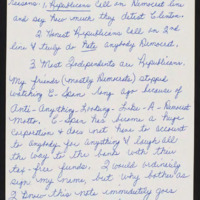 lessons. 1. Republicans call on Democrat line
and say how much they detest Clinton.
2 Honest Republicans call on 2nd
line & truly do hate anybody Democrat.
3 Most Independents are Republicans.
My friends (mostly Democrats) stopped
watching C-Span long ago because of
Anti-anything. Looking-Like-A-Democrat
Motto. C-Span has become a huge
Corporation & does not have to account
to anybody for anything & laugh all
the way to the bank with their
tax-free funds. I would ordinarily
sign my name, but why bother as
I know this note immediately goes